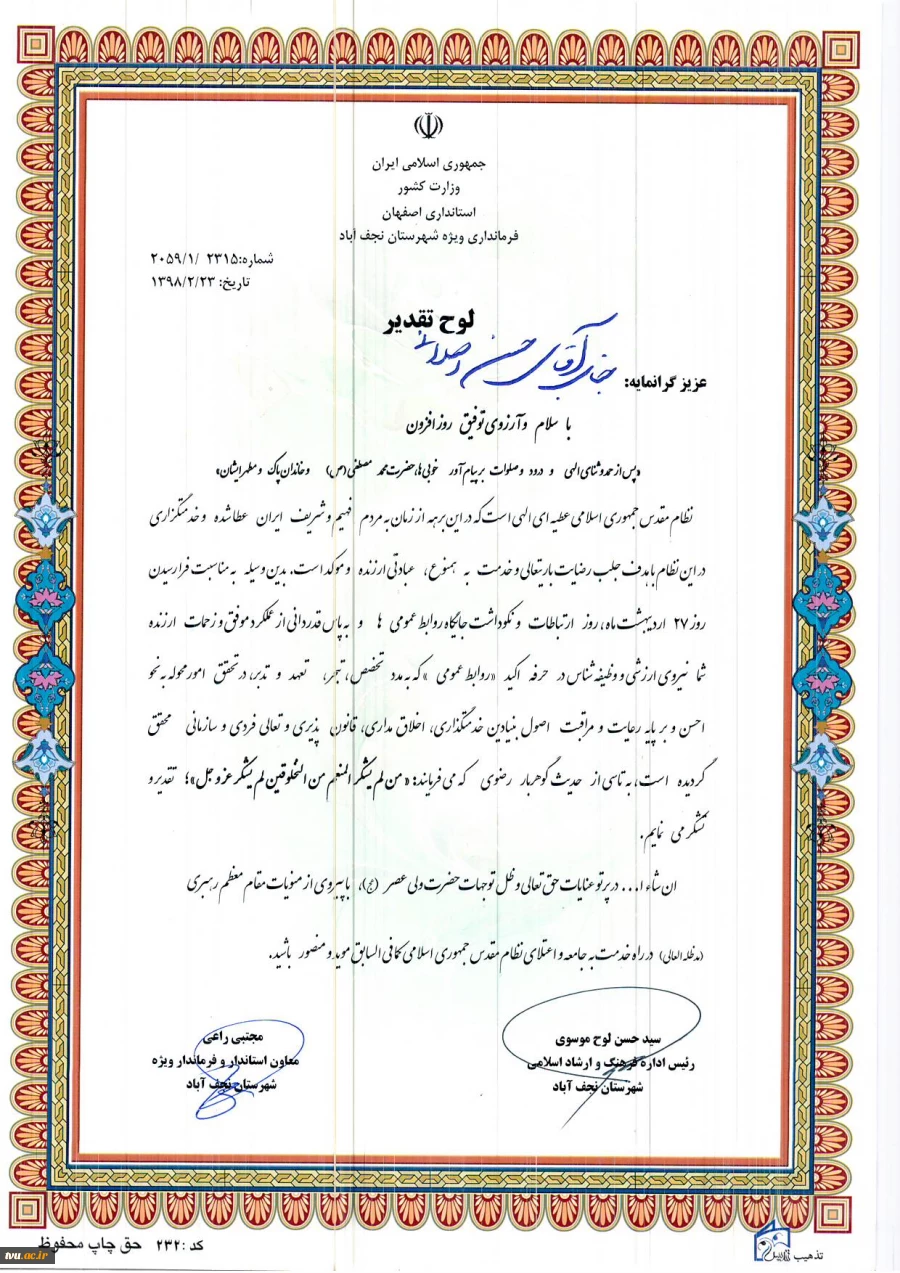 جمهوری اسلامی ایران
وزارت کشور
استانداری اصفهان
فرمانداری ویژه شهرستان نجف آباد
شماره:۲۳۱۵ /۲۰۵۹/۱
تاریخ: ۱۳۹۸/۲/۲۳
لوح تقدیر
عزیز گرانمایه: جناب آقای حسن
با سلام و آرزوی توفیق روز افزون
«پس از حمد و ثنای الهی و درود و صلوات بر پیام آور خوبی ها، حضرت محمد مصطفی (ص) و خاندان پاک و مطهر ایشان»
نظام مقدس جمهوری اسلامی عطیه ای الهی است که در این برهه از زمان به مردم فهیم و شریف ایران عطا شده و خدمتگزاری
در این نظام با هدف جلب رضایت باریتعالی و خدمت به همنوع، عبادتی ارزنده و موکد است. بدین وسیله به مناسبت فرارسیدن
روز ۲۷ اردیبهشت ماه، روز ارتباطات و نکوداشت جایگاه روابط عمومی ها و به پاس قدردانی از عملکرد موفق و زحمات ارزنده
شما نیروی ارزشی و وظیفه شناس در حرفه اکید «روابط عمومی» که به مدد تخصص، تبحر، تعهد و تدبر، در تحقق امور محوله به نحو
احسن و بر پایه رعایت و مراقبت اصول بنیادین خدمتگذاری، اخلاق مداری، قانون پذیری و تعالی فردی و سازمانی محقق
گردیده است، به تاسی از حدیث گوهربار رضوی که می فرمایند: «من لم یشکر المنعم من المخلوقین لم یشکر عزوجل»؛ تقدیر و
تشکر می نمایم.
ان شاء ا... در پرتو عنایات حق تعالی و ظل توجهات حضرت ولی عصر (عج)، با پیروی از منویات مقام معظم رهبری
(مدظله العالی) در راه خدمت به جامعه و اعتلای نظام مقدس جمهوری اسلامی کمافی السابق موید و منصور باشید.
سید حسن لوح موسوی
رئیس اداره فرهنگ و ارشاد اسلامی
شهرستان نجف آباد
مجتبی راعی
معاون استاندار و فرماندار ویژه
شهرستان نجف آباد
کد : ۲۳۲ حق چاپ محفوظ
تذهیب
tvu.ac.ir